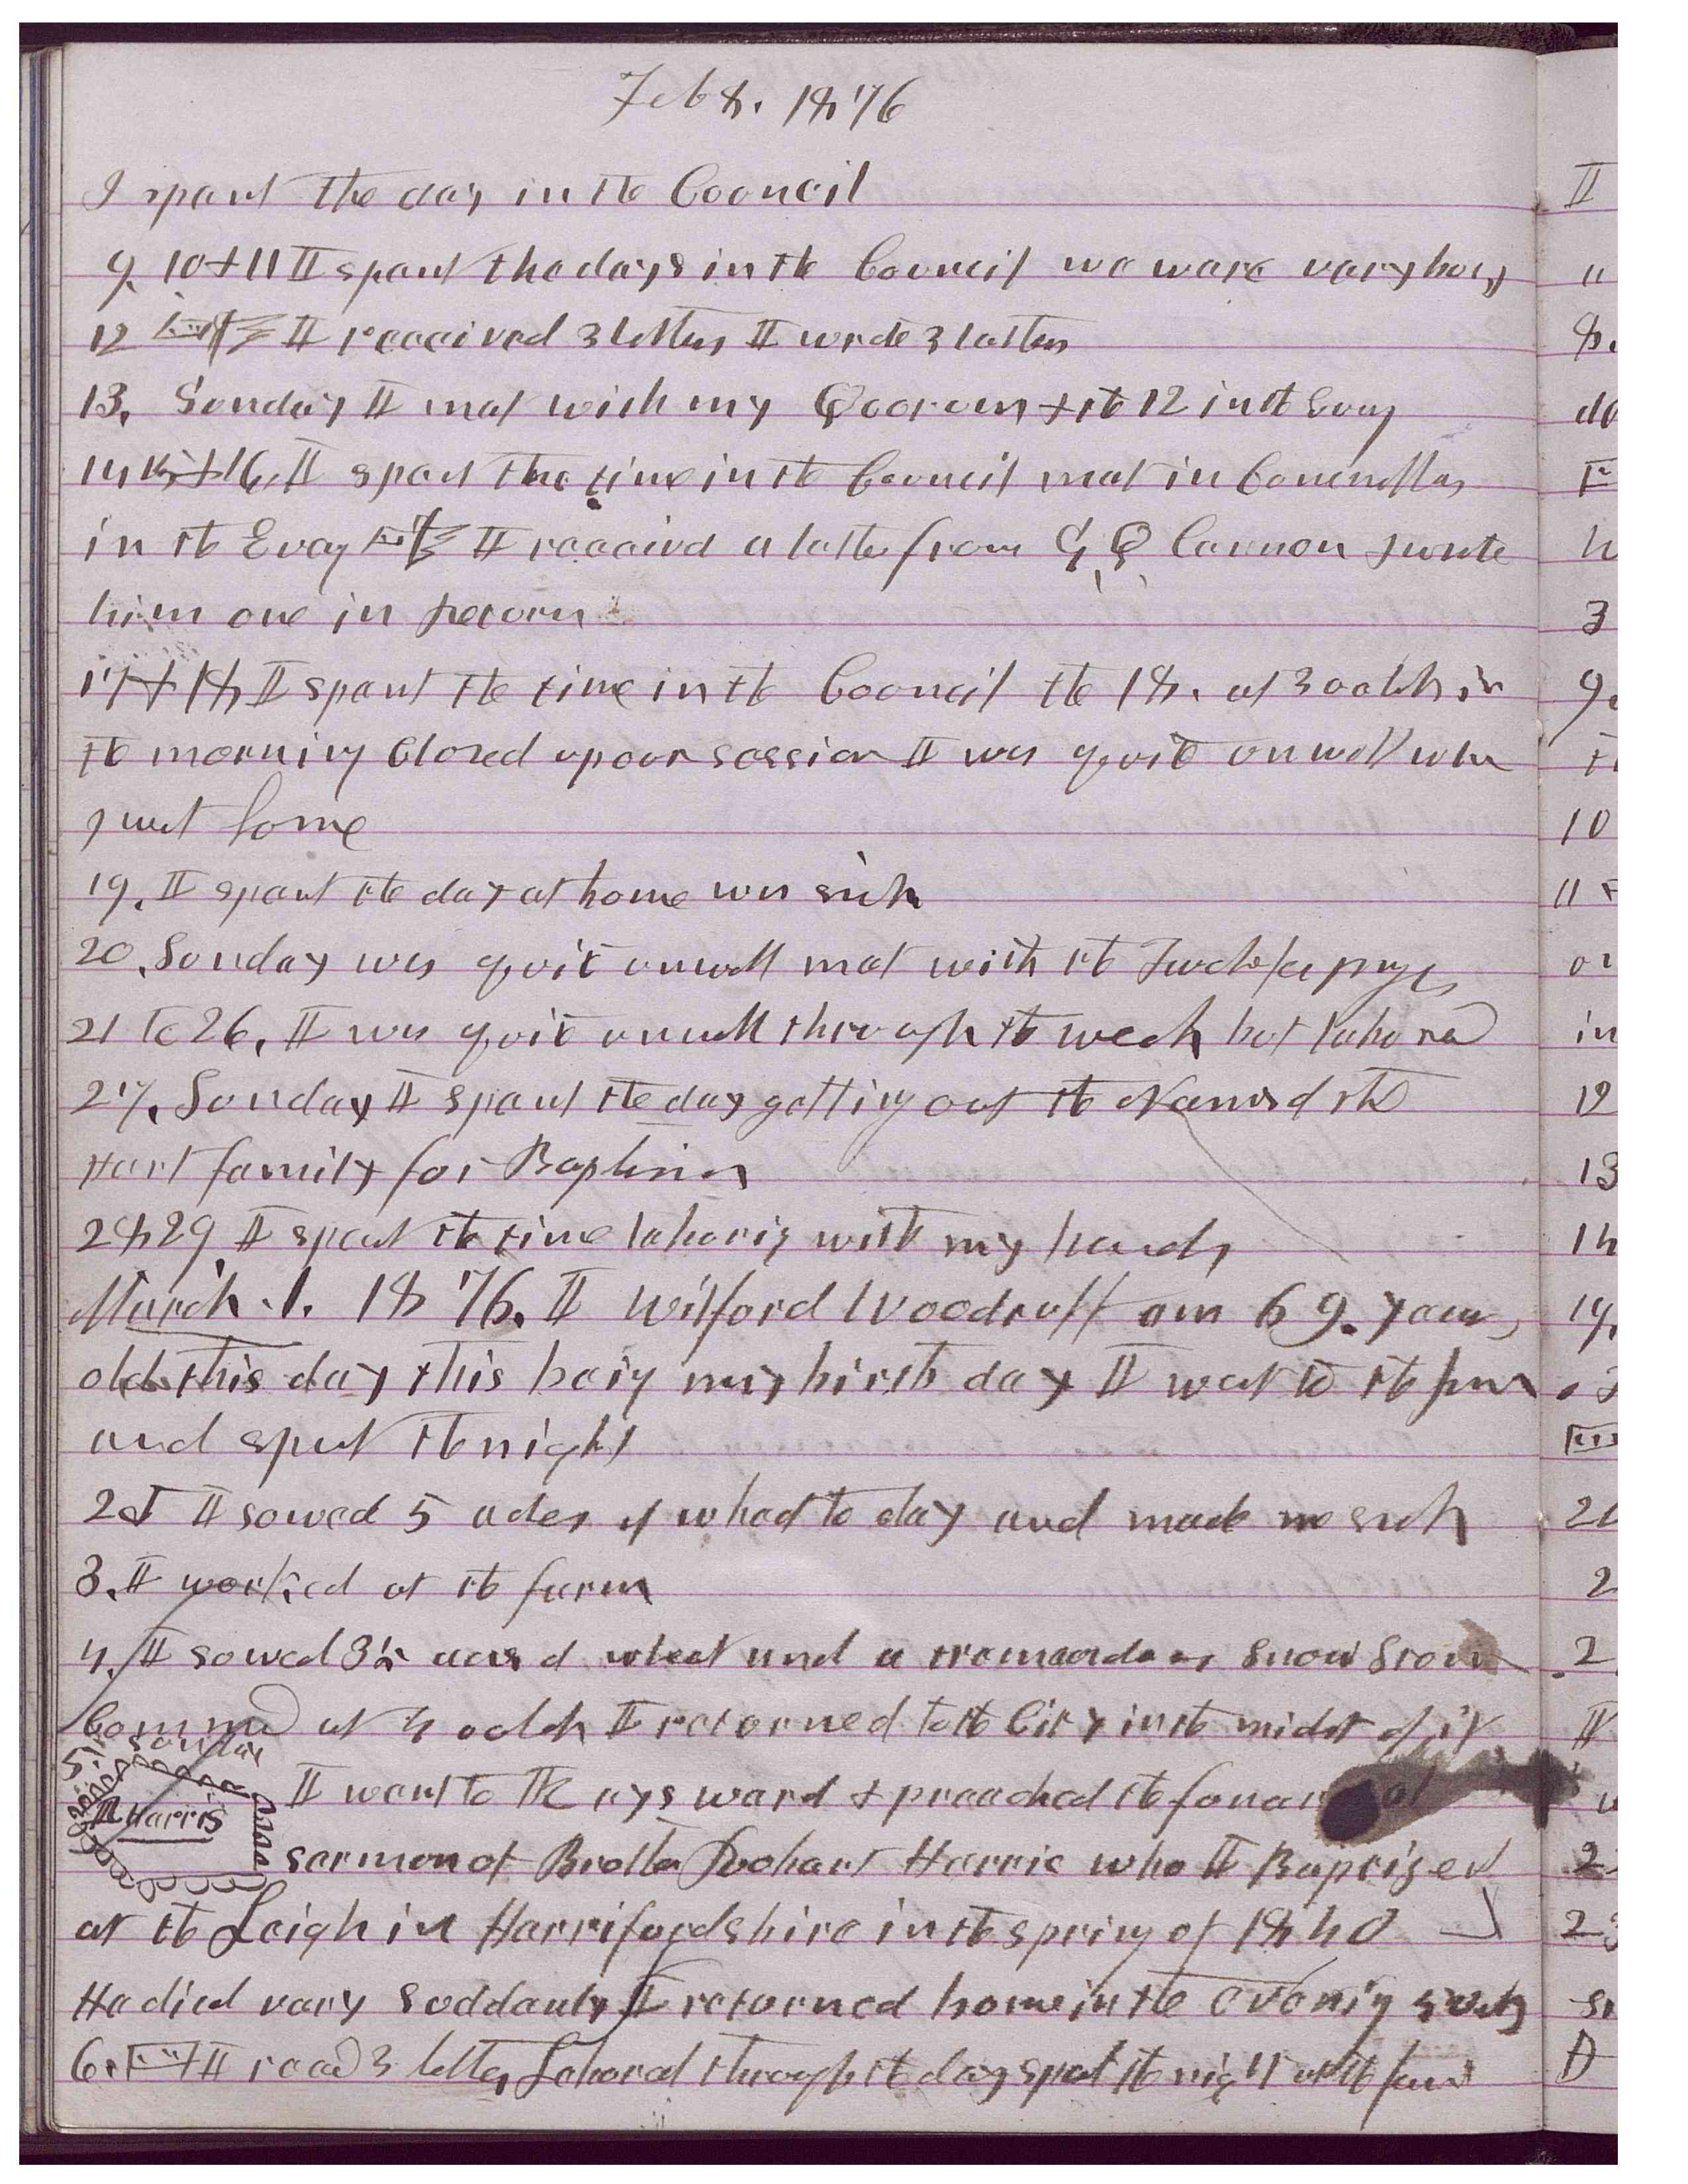 Feb 8. 1876
I spent the day in the Council
9. 10 + 11 I spent the days in the Council we ware vary busy
12 I received 3 letters I wrote 3 letters
13. Sunday I met with my Quorum + the 12 in the Eveng
14 15 + 16, I spent the time in the Council met in Committee
in the Eveng I received a letter from G, Q Cannon & wrote
him one in return
17 + 18 I spent the time in the Council the 18. at 3 oclok in
the morning Closed up our session I was quite unwell when
I went home
19. I spent the day at home was sick
20. Sunday was quite unwell met with the Twelve for prayer
21 to 26. I was quite unwell through the week but labored
27. Sunday I spent the day getting out the Names of the
Hart family for Baptism
28 29 I spent the time laboring with my hands
March .1. 1876. I Wilford Woodruff am 69. years
old this day this being my birth day I went to the farm
and spent the night
2d I sowed 5 acres of wheat to day and made me sick
3. I worked at the farm
4. I sowed 3½ acres of wheat and a tremendous snow storm
Commenced at 4 oclok I returned to the City in the midst of it
5. Sunday
R Harris
I went to Kays ward & preached the funeral
sermon of Brother Robart Harris who I Baptized
at the Leigh in Harrifordshire in the spring of 1840
He died vary suddenly I returned home in the evening
6. I recd 3 letters Labored through the day spent the night at the farm